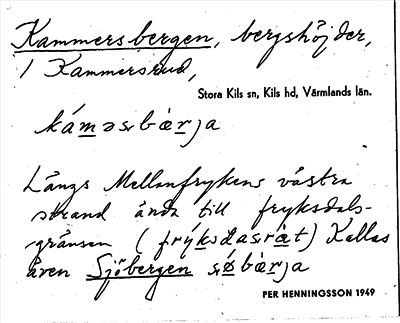 Kammersbergen, bergshöjder,
i Kammersrud,
Stora Kils sn, Kils hd, Värmlands län.
kámǝsbæ̀rja
Längs Mellanfrykens västra
strand ända till fryksdals-
gränsen (frýksdasræ̀t) Kallas
även Sjöbergen sø̀bæ̀rja
PER HENNINGSSON 1949